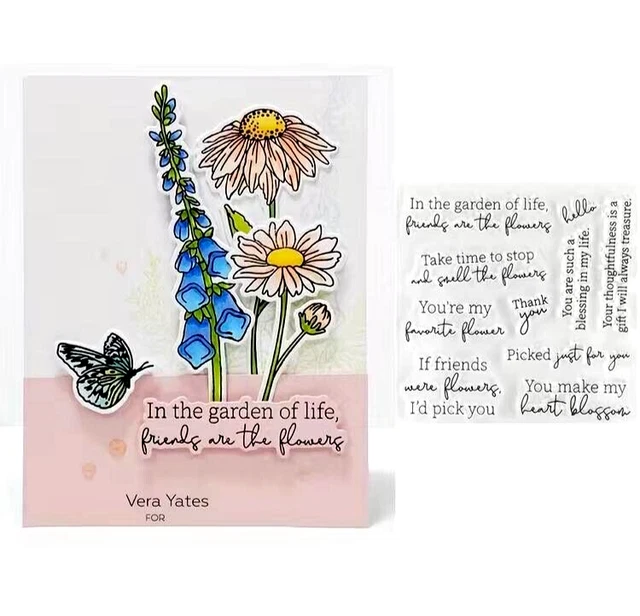 In the garden of life,
friends are the flowers
Vera Yates
FOR
In the garden of life,
friends are the flowers
hello
Take time to stop
and smell the flowers
You're my
favorite flower
Thank
you
You are such a
blessing in my life.
Your thoughtfulness is a
gift I will always treasure.
If friends
were flowers,
I'd pick you
Picked just for you
You make my
heart blossom